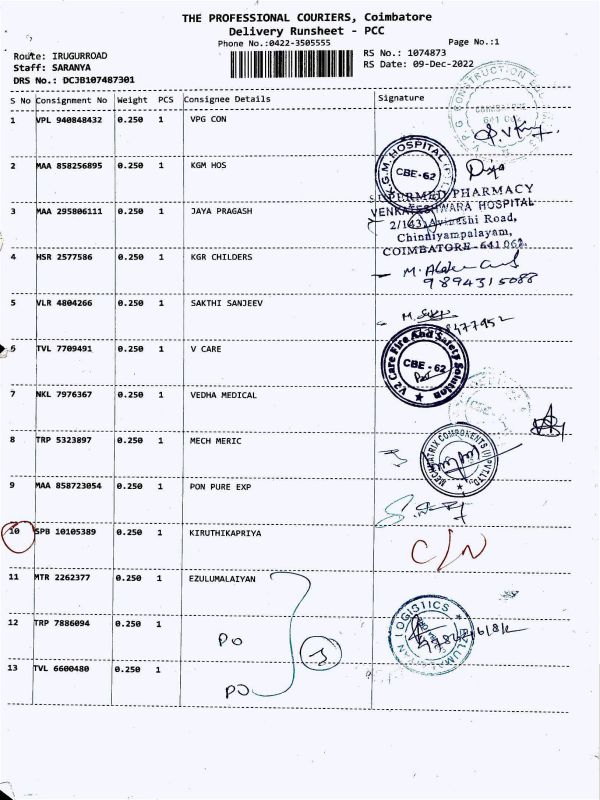 THE PROFESSIONAL COURIERS, Coimbatore
Delivery Runsheet - PCC
Phone No.:0422-3505555
Page No.:1
Route: IRUGURROAD
RS No.: 1074873
Staff: SARANYA
RS Date: 09-Dec-2022
DRS No.: DCJB107487301
S No Consignment No Weight PCS Consignee Details Signature
1 VPL 940848432 0.250 1 VPG CON
2 MAA 858256895 0.250 1 KGM HOS
K.G.M. HOSPITAL
CBE-62
SUPERMED PHARMACY
3 MAA 295806111 0.250 1 JAYA PRAGASH
VENKATESHWARA HOSPITAL
2/143, Avinashi Road,
Chinniyampalayam,
COIMBATORE-641062.
4 HSR 2577586 0.250 1 KGR CHILDERS
9894315088
5 VLR 4804266 0.250 1 SAKTHI SANJEEV
6 TVL 7709491 0.250 1 V CARE
V2 Care Fire And Safety Solution
CBE - 62
7 NKL 7976367 0.250 1 VEDHA MEDICAL
8 TRP 5323897 0.250 1 MECH MERIC
MECHMATRIX COMPONENTS (I) PVT LTD
9 MAA 858723054 0.250 1 PON PURE EXP
10 SPB 10105389 0.250 1 KIRUTHIKAPRIYA
C/N
11 MTR 2262377 0.250 1 EZULUMALAIYAN
12 TRP 7886094 0.250 1
LOGISTICS
PO
13 TVL 6600480 0.250 1
PO